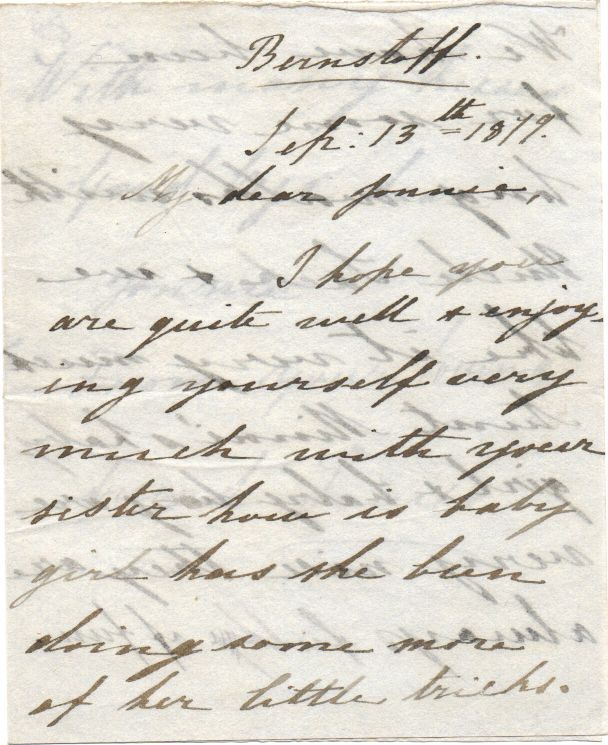 Bernstoff.
Sep: 13th 1879.
My dear Jonnie,
I hope you
are quite well & enjoy-
ing yourself very
much with your
sister how is baby
girl has she been
doing some more
of her little tricks.